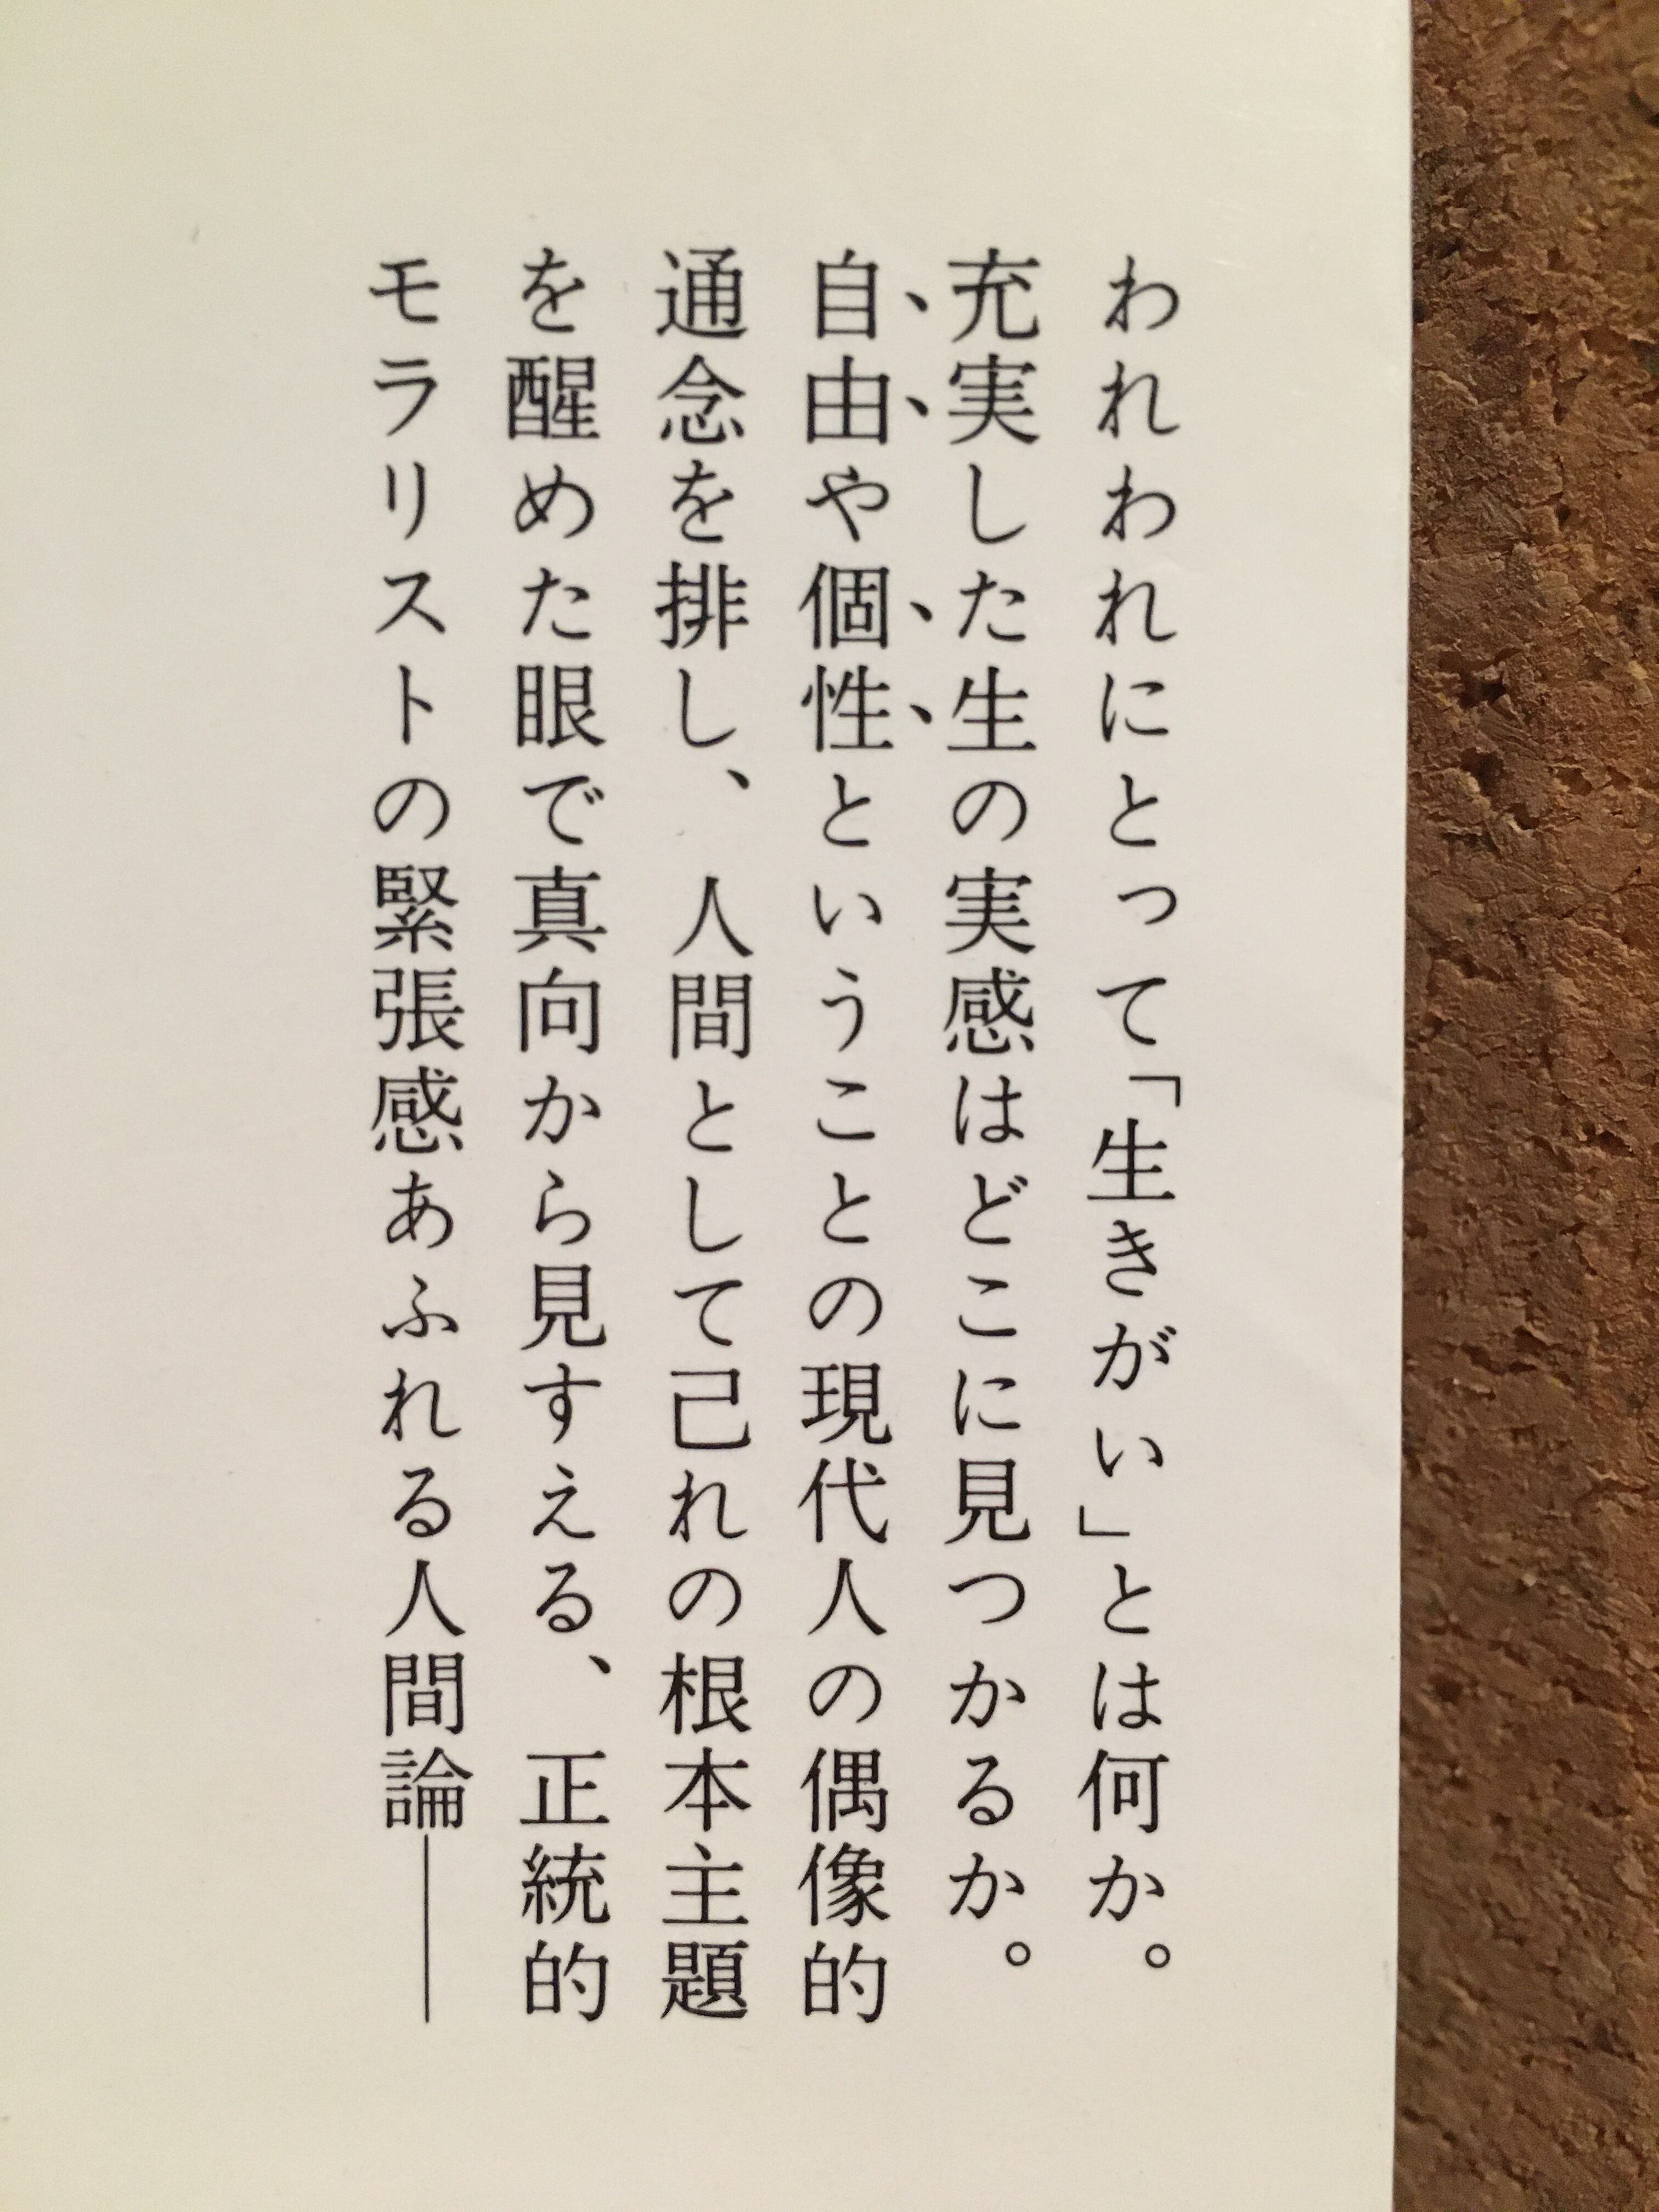 われわれにとって「生きがい」とは何か。
充実した生の実感はどこに見つかるか。
自由や個性ということの現代人の偶像的
通念を排し、人間として己れの根本主題
を醒めた眼で真向から見すえる、正統的
モラリストの緊張感あふれる人間論――